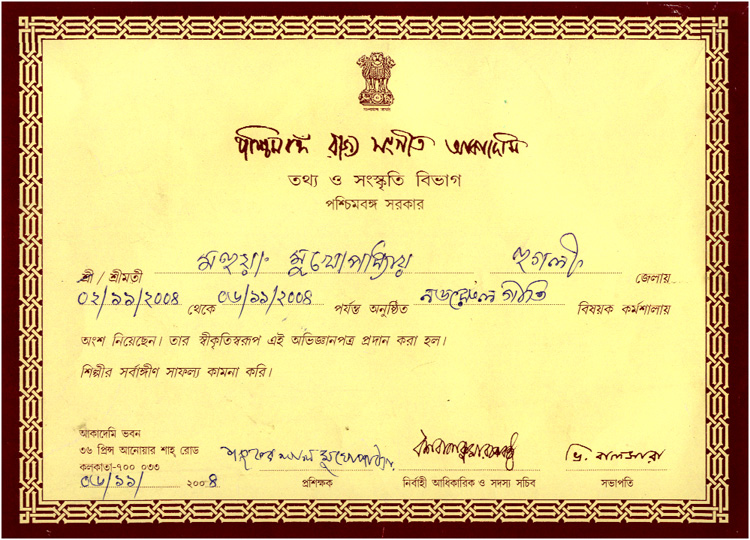 পশ্চিমবঙ্গ রাজ্য সংগীত আকাদেমি
তথ্য ও সংস্কৃতি বিভাগ
পশ্চিমবঙ্গ সরকার
শ্রী / শ্রীমতী মহুয়া মুখোপাধ্যায় হুগলী জেলায়
০২/১১/২০০৪ থেকে ০৬/১১/২০০৪ পর্যন্ত অনুষ্ঠিত নজরুল গীতি বিষয়ক কর্মশালায়
অংশ নিয়েছেন। তার স্বীকৃতিস্বরূপ এই অভিজ্ঞানপত্র প্রদান করা হল।
শিল্পীর সর্বাঙ্গীণ সাফল্য কামনা করি।
আকাদেমি ভবন
৩৬ প্রিন্স আনোয়ার শাহ্ রোড
কলকাতা-৭০০ ০৩৩
০৬/১১/ ২০০৪
মুখোপাধ্যায়
ভি. বালসারা
প্রশিক্ষক নির্বাহী আধিকারিক ও সদস্য সচিব সভাপতি